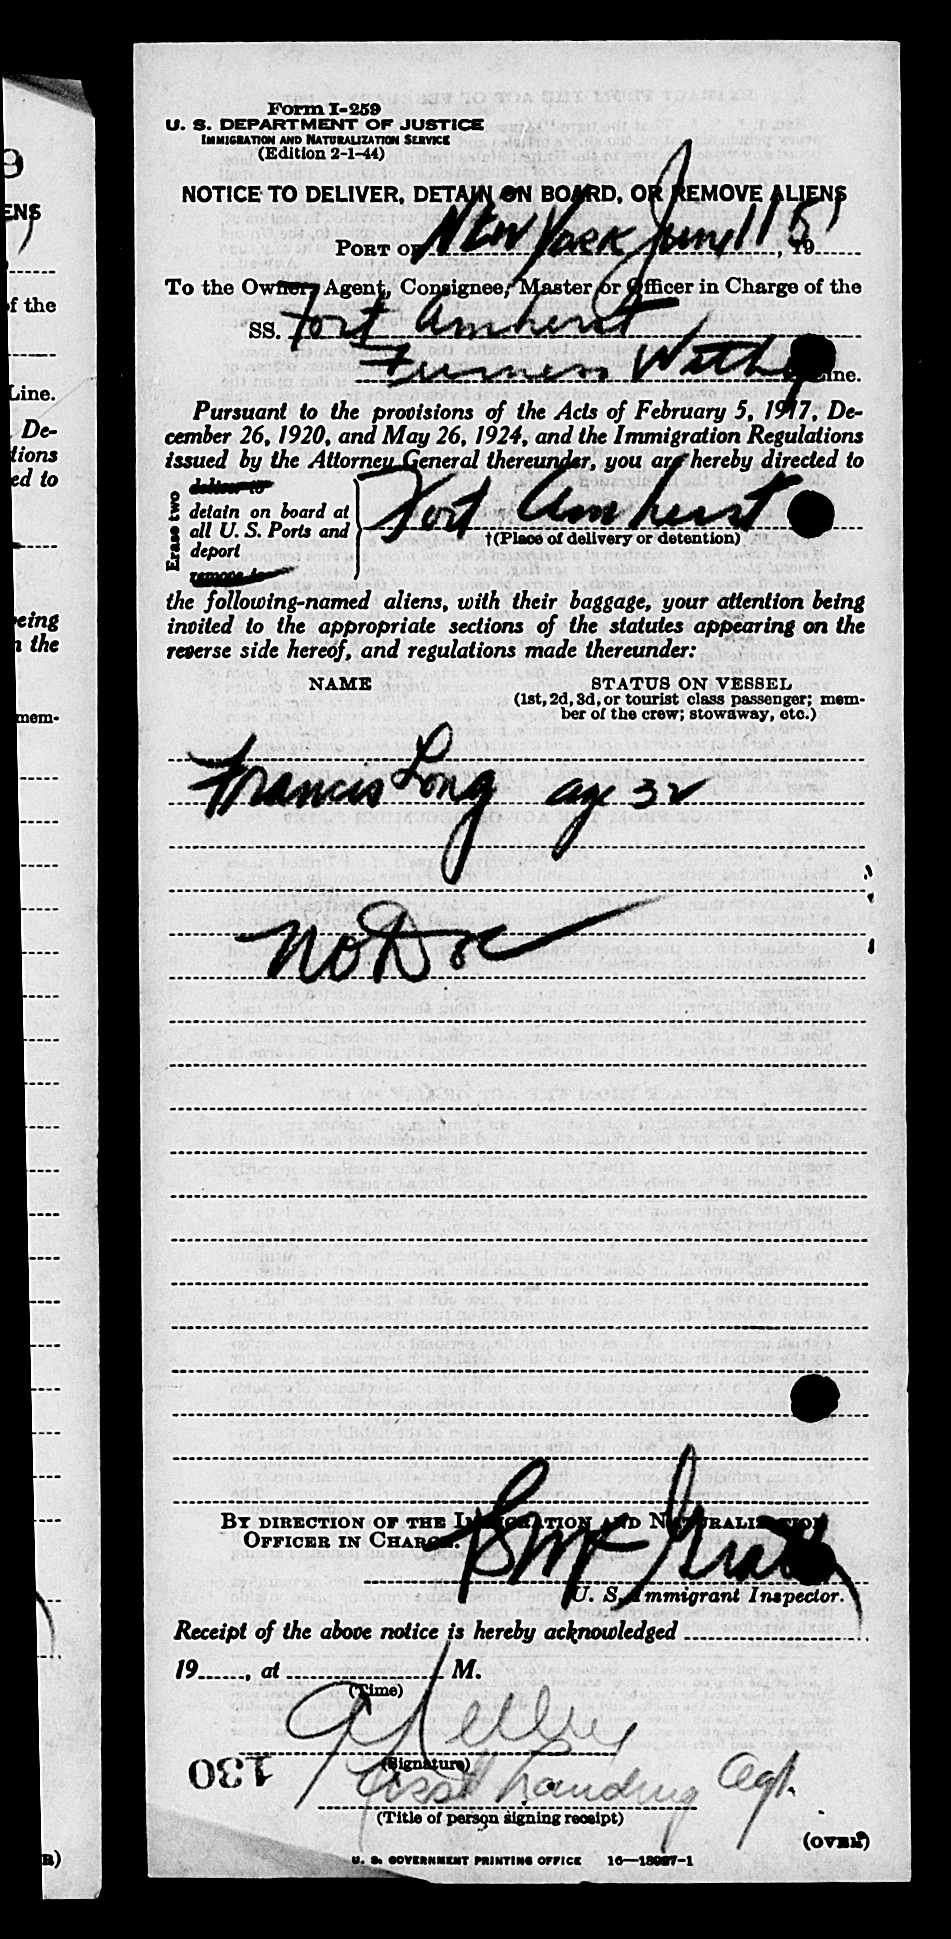 Form I-259
U. S. DEPARTMENT OF JUSTICE
IMMIGRATION AND NATURALIZATION SERVICE
(Edition 2-1-44)
NOTICE TO DELIVER, DETAIN ON BOARD, OR REMOVE ALIENS
PORT OF New York June 11 51, 19
To the Owner, Agent, Consignee, Master or Officer in Charge of the
SS. Fort Amherst
Furness Withy Line.
Pursuant to the provisions of the Acts of February 5, 1917, De-
cember 26, 1920, and May 26, 1924, and the Immigration Regulations
issued by the Attorney General thereunder, you are hereby directed to
Erase two
deliver to
detain on board at
all U. S. Ports and
deport
remove to
Fort Amherst
†(Place of delivery or detention)
the following-named aliens, with their baggage, your attention being
invited to the appropriate sections of the statutes appearing on the
reverse side hereof, and regulations made thereunder:
NAME STATUS ON VESSEL
(1st, 2d, 3d, or tourist class passenger; mem-
ber of the crew; stowaway, etc.)
Francis Long age 32
No Doc
BY DIRECTION OF THE IMMIGRATION AND NATURALIZATION
OFFICER IN CHARGE.
U. S. Immigrant Inspector.
Receipt of the above notice is hereby acknowledged
19, at M.
(Time)
(Signature)
Asst Landing Agt.
(Title of person signing receipt)
130
(OVER)
U. S. GOVERNMENT PRINTING OFFICE 16—13987-1
9
ENS
of the
Line.
De-
tions
ed to
eing
n the
mem-
R)